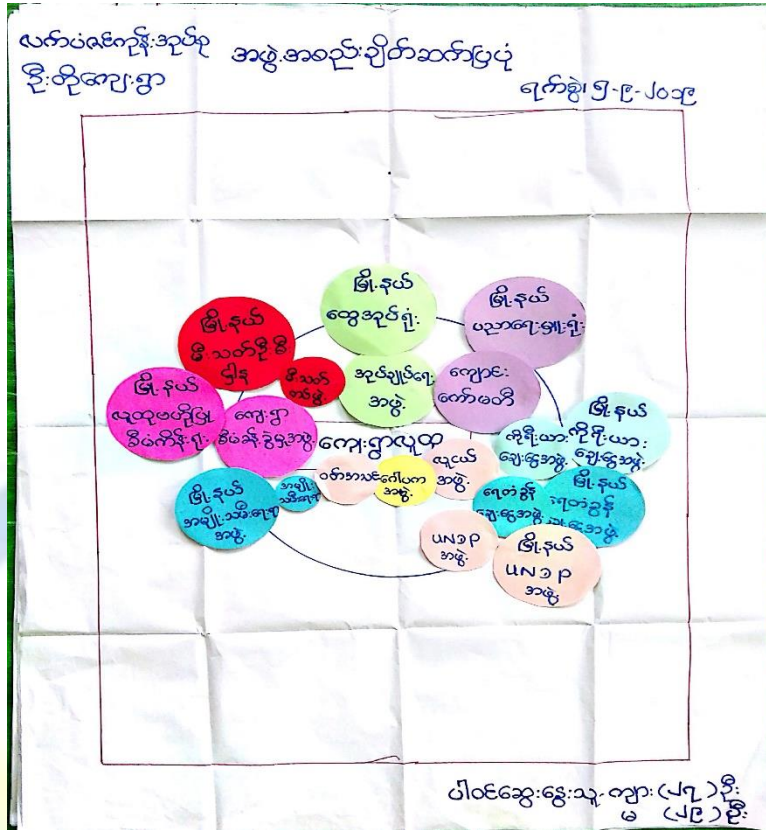 လက်ပံဇင်ကုန်းအုပ်စု
ဦးတိုကျေးရွာ
အဖွဲ့အစည်းချိတ်ဆက်ပြပုံ
ရက်စွဲ၊ ၅-၉-၂၀၁၉
မြို့နယ်
ထွေအုပ်ရုံး
မြို့နယ်
ပညာရေးမှူးရုံး
မြို့နယ်
မီးသတ်ဦးစီး
ဌာန
မီးသတ်
တပ်ဖွဲ့
အုပ်ချုပ်ရေး
အဖွဲ့
ကျောင်း
ကော်မတီ
မြို့နယ်
လူထုဗဟိုပြု
စီမံကိန်းရုံး
ကျေးရွာ
စီမံခန့်ခွဲမှုအဖွဲ့
ကျေးရွာလူထု
ကိုရီးယား
ချေးငွေအဖွဲ့
မြို့နယ်
ကိုရီးယား
ချေးငွေအဖွဲ့
မြို့နယ်
အမျိုးသမီးရေးရာ
အဖွဲ့
အမျိုး
သမီးရေးရာ
ဝတ်အသင်း
ဂေါပက
အဖွဲ့
လူငယ်
အဖွဲ့
ရေတံခွန်
ချေးငွေအဖွဲ့
မြို့နယ်
ရေတံခွန်
ချေးငွေအဖွဲ့
UNDP
အဖွဲ့
မြို့နယ်
UNDP
အဖွဲ့
ပါဝင်ဆွေးနွေးသူ ကျား (၂၇) ဦး
မ (၂၉) ဦး